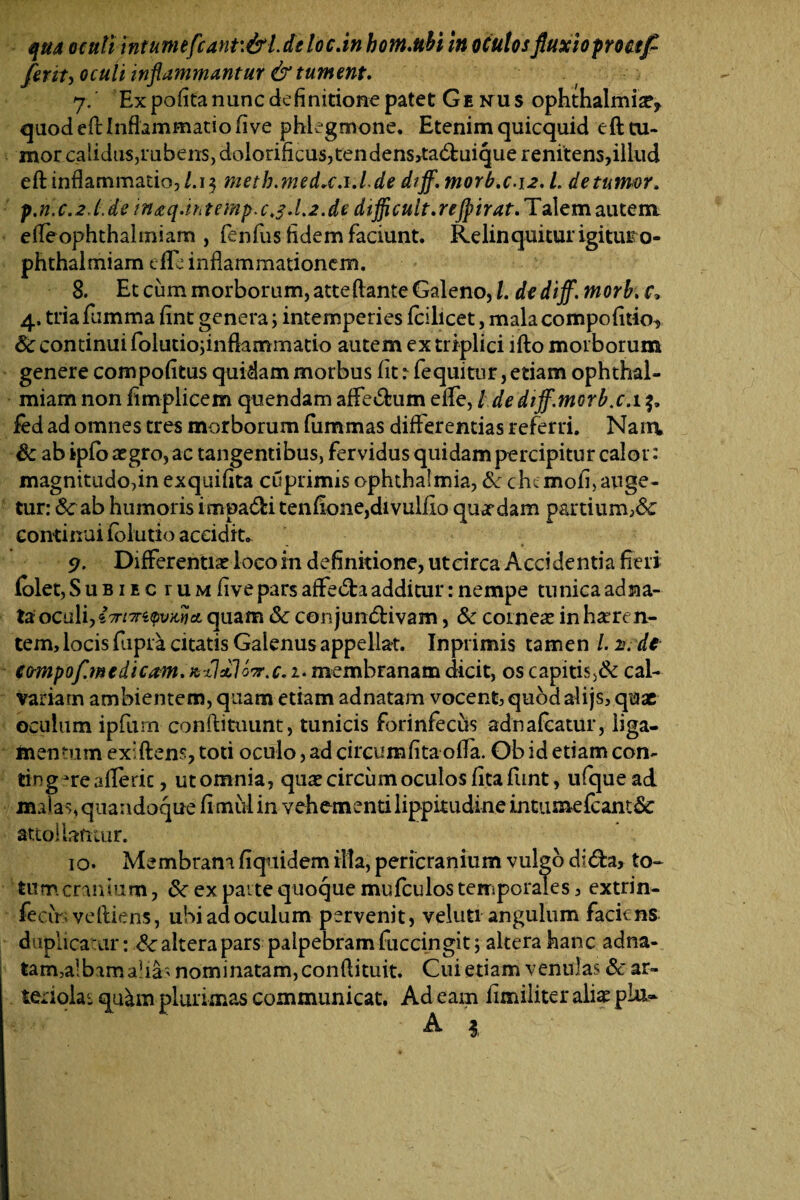 qua oculi intumeſcant:&l.de loc.in hom.ubi in oculos fluxio proceſ-
ſerit, oculi inflammantur & tument.
7. Ex poſita nunc definitione patet GENUS ophthalmiæ,
quod eſt Inflammatio ſive phlegmone. Etenim quicquid eſt tu-
mor calidus, rubens, dolorificus, tendens, tactuique renitens, illud
eſt inflammatio, l.13 meth.med.c.1.l.de diff. morb.c.12. l. de tumor.
p.n.c.2.l.de inæq.intemp.c.3.l.2.de difficult.reſpirat. Talem autem
eſſe ophthalmiam , ſenſus fidem faciunt. Relinquitur igitur o-
phthalmiam eſſe inflammationem.
8. Et cùm morborum, atteſtante Galeno, l. de diff. morb. c.
4. tria ſumma ſint genera; intemperies ſcilicet, mala compoſitio,
& continui ſolutio; inflammatio autem ex triplici iſto morborum
genere compoſitus quidam morbus ſit: ſequitur, etiam ophthal-
miam non ſimplicem quendam affectum eſſe, l de diff.morb.c.13.
ſed ad omnes tres morborum ſummas differentias referri. Nam
& ab ipſo ægro, ac tangentibus, fervidus quidam percipitur calor:
magnitudo, in exquiſita cũprimis ophthalmia, & chemoſi, auge-
tur: & ab humoris impacti tenſione, divulſio quædam partium, &
continui ſolutio accidit.
9. Differentiæ loco in definitione, ut circa Accidentia fieri
ſolet, SUBIECTUM ſive pars affecta additur: nempe tunica adna-
ta oculi, ἐπιπεφυκῄα quam & conjunctivam, & corneæ inhæren-
tem, locis ſuprà citatis Galenus appellat. Inprimis tamen l. 2. de
compoſ.medicam. κατὰ τόπ.c.1. membranam dicit, os capitis, & cal-
variam ambientem, quam etiam adnatam vocent, quòd alijs, quæ
oculum ipſum conſtituunt, tunicis forinſecùs adnaſcatur, liga-
mentum exiſtens, toti oculo, ad circumſita oſſa. Ob id etiam con-
tingere aſſerit, ut omnia, quæ circùm oculos ſita ſunt, uſque ad
malas, quandoque ſimul in vehementi lippitudine intumeſcant &
attollantur.
10. Membrana ſiquidem illa, pericranium vulgò dicta, to-
tum cranium, & ex parte quoque muſculos temporales, extrin-
ſecùs veſtiens, ubi ad oculum pervenit, veluti angulum faciens
duplicatur: & altera pars palpebram ſuccingit; altera hanc adna-
tam, albam aliàs nominatam, conſtituit. Cui etiam venulas & ar-
teriolas quàm plurimas communicat. Ad eam ſimiliter aliæ plu-
A 3